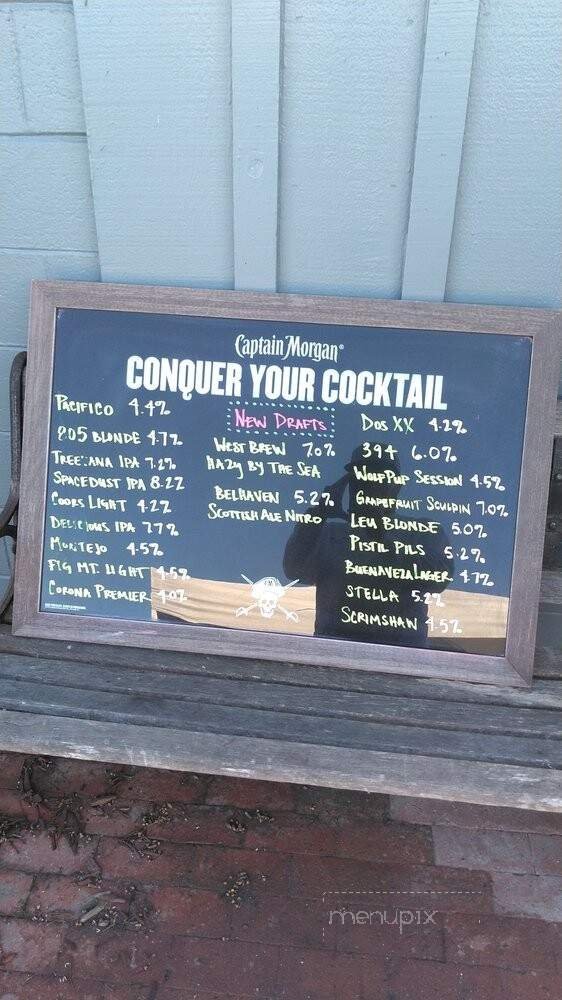 Captain Morgan®
CONQUER YOUR COCKTAIL
PACIFICO 4.4%
805 BLONDE 4.7%
IPA 7.2%
SPACEDUST IPA 8.2%
COORS LIGHT 4.2%
DELICIOUS IPA 7.7%
MONTEJO 4.5%
FIG MT. LIGHT 4.5%
CORONA PREMIER 4.0%
NEW DRAFTS
WEST BREW 7.0%
HAZY BY THE SEA
BELHAVEN 5.2%
SCOTTISH ALE NITRO
DOS XX 4.2%
394 6.0%
WOLF PUP SESSION 4.5%
GRAPEFRUIT SCULPIN 7.0%
LEU BLONDE 5.0%
PISTIL PILS 5.2%
BUENAVEZA LAGER 4.7%
STELLA 5.2%
SCRIMSHAW 4.5%
menupix